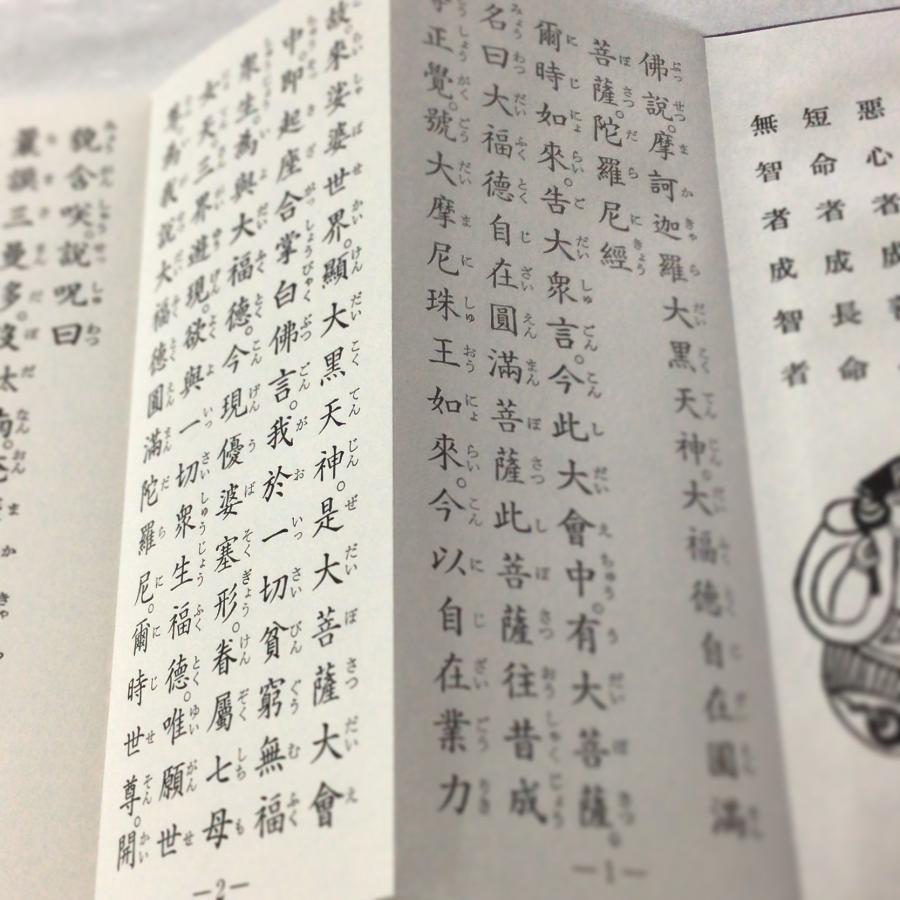 悪心者成善
短命者成長命
無智者成智者
佛說。摩訶迦羅大黒天神。大福德自在圓滿
菩薩。陀羅尼經
爾時如來。告大衆言。今此大會中。有大菩薩。
名曰大福德自在圓滿菩薩此菩薩往昔成
正覺。號大摩尼珠王如來。今以自在業力
—1—
故。來娑婆世界。顯大黒天神。是大菩薩大會
中。即起座合掌白佛言。我於一切貧窮無福
衆生。為與大福德。今現優婆塞形。眷屬七母
女天三界遊現。欲與一切衆生福德。唯願世
尊。為我說大福德圓滿陀羅尼。爾時世尊。開
—2—
貌含咲。說呪曰
曩謨三曼多沒太南。